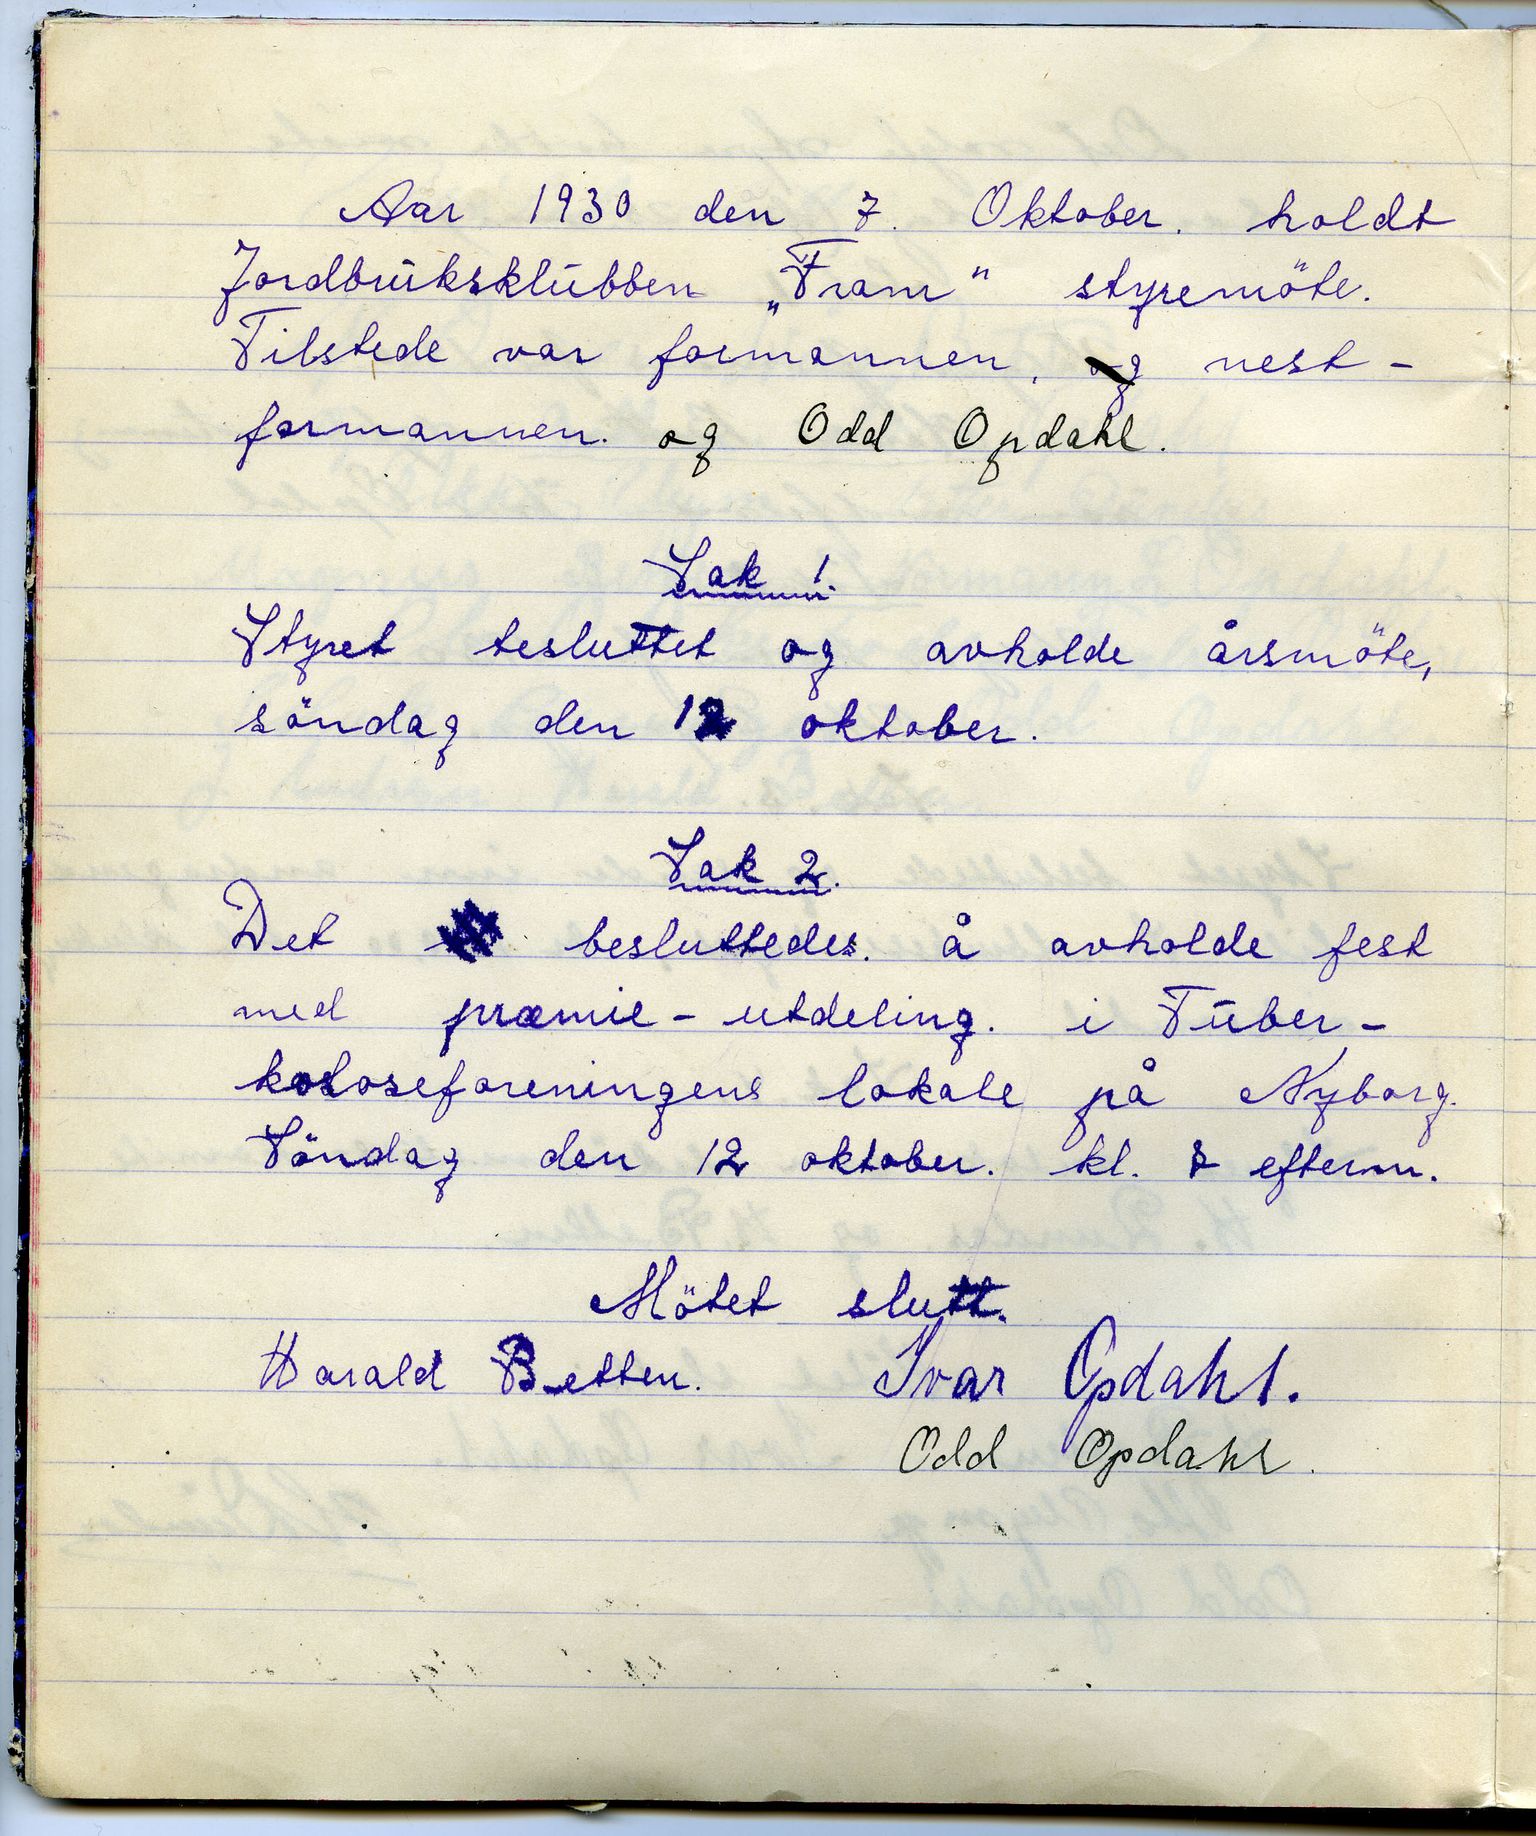 Aar 1930 den 7. Oktober. holdt
Jordbrūksklūbben „Fram" styremöte.
Tilstede var formannen, og nest-
formannen. og Odd Opdahl.
Sak 1.
Styret besluttet og avholde årsmöte,
söndag den 12 oktober.
Sak 2.
Det besluttedes. å avholde fest
med præmie-utdeling. i Tūber-
koloseforeningens lokale på Nyborg.
Söndag den 12 oktober. kl. efterm.
Mötet slutt.
Harald Betten. Ivar Opdahl.
Odd Opdahl.